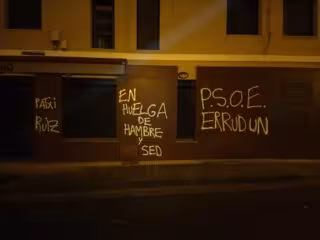 PATXI
RUIZ
EN
HUELGA
DE
HAMBRE
Y
SED
P.S.O.E.
ERRUDUN